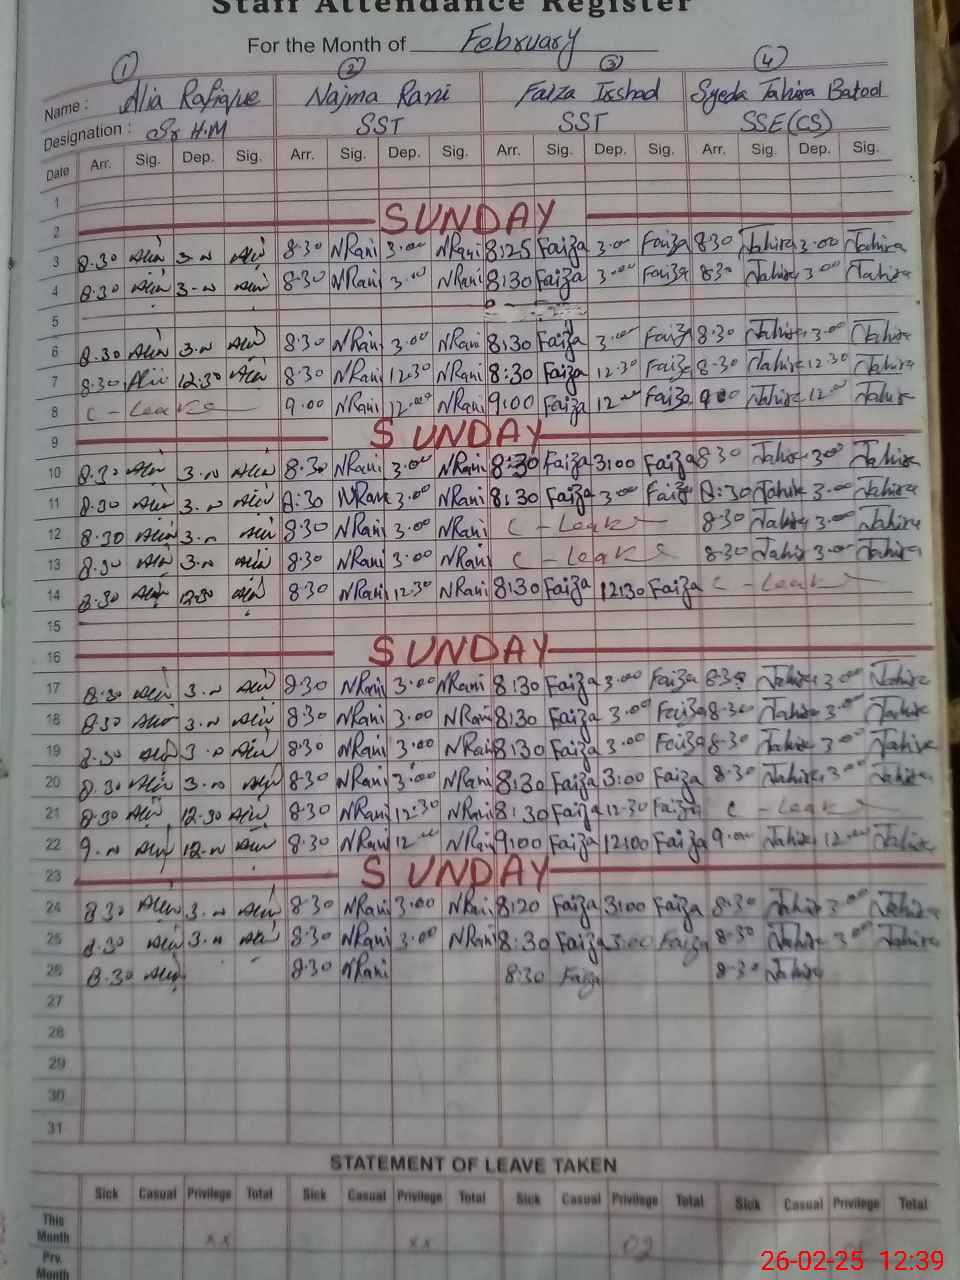 Staff Attendance Register
For the Month of February
1 2 3 4
Name : Alia Rafique Najma Rani Faiza Irshad Syeda Tahira Batool
Designation : Sr H.M SST SST SSE(CS)
Date Arr. Sig. Dep. Sig. Arr. Sig. Dep. Sig. Arr. Sig. Dep. Sig. Arr. Sig. Dep. Sig.
1
2 SUNDAY
3 8.30 Alia 3.00 Alia 8.30 NRani 3.00 NRani 8:25 Faiza 3.00 Faiza 8.30 Tahira 3.00 Tahira
4 8.30 Alia 3.00 Alia 8.30 NRani 3.00 NRani 8:30 Faiza 3.00 Faiza 8.30 Tahira 3.00 Tahira
5
6 8.30 Alia 3.00 Alia 8.30 NRani 3.00 NRani 8:30 Faiza 3.00 Faiza 8.30 Tahira 3.00 Tahira
7 8.30 Alia 12.30 Alia 8.30 NRani 12.30 NRani 8:30 Faiza 12.30 Faiza 8.30 Tahira 12.30 Tahira
8 C-Leave 9.00 NRani 12.00 NRani 9:00 Faiza 12.00 Faiza 9.00 Tahira 12.00 Tahira
9 SUNDAY
10 8.30 Alia 3.00 Alia 8.30 NRani 3.00 NRani 8:30 Faiza 3:00 Faiza 8.30 Tahira 3.00 Tahira
11 8.30 Alia 3.00 Alia 8:30 NRani 3.00 NRani 8:30 Faiza 3.00 Faiza 8:30 Tahira 3.00 Tahira
12 8.30 Alia 3.00 Alia 8.30 NRani 3.00 NRani C-Leave 8.30 Tahira 3.00 Tahira
13 8.30 Alia 3.00 Alia 8.30 NRani 3.00 NRani C-Leave 8.30 Tahira 3.00 Tahira
14 8.30 Alia 12.30 Alia 8.30 NRani 12.30 NRani 8:30 Faiza 12:30 Faiza C-Leave
15
16 SUNDAY
17 8.30 Alia 3.00 Alia 8.30 NRani 3.00 NRani 8:30 Faiza 3.00 Faiza 8.30 Tahira 3.00 Tahira
18 8.30 Alia 3.00 Alia 8.30 NRani 3.00 NRani 8:30 Faiza 3.00 Faiza 8.30 Tahira 3.00 Tahira
19 8.30 Alia 3.00 Alia 8.30 NRani 3.00 NRani 8:30 Faiza 3.00 Faiza 8.30 Tahira 3.00 Tahira
20 8.30 Alia 3.00 Alia 8.30 NRani 3.00 NRani 8:30 Faiza 3:00 Faiza 8.30 Tahira 3.00 Tahira
21 8.30 Alia 12.30 Alia 8.30 NRani 12.30 NRani 8:30 Faiza 12.30 Faiza C-Leave
22 9.00 Alia 12.00 Alia 8.30 NRani 12.00 NRani 9:00 Faiza 12:00 Faiza 9.00 Tahira 12.00 Tahira
23 SUNDAY
24 8.30 Alia 3.00 Alia 8.30 NRani 3.00 NRani 8:20 Faiza 3:00 Faiza 8.30 Tahira 3.00 Tahira
25 8.30 Alia 3.00 Alia 8.30 NRani 3.00 NRani 8:30 Faiza 3:00 Faiza 8.30 Tahira 3.00 Tahira
26 8.30 Alia 8.30 NRani 8:30 Faiza 8.30 Tahira
27
28
29
30
31
STATEMENT OF LEAVE TAKEN
Sick Casual Privilege Total Sick Casual Privilege Total Sick Casual Privilege Total Sick Casual Privilege Total
This Month xx xx 02
Prv. Month
26-02-25 12:39